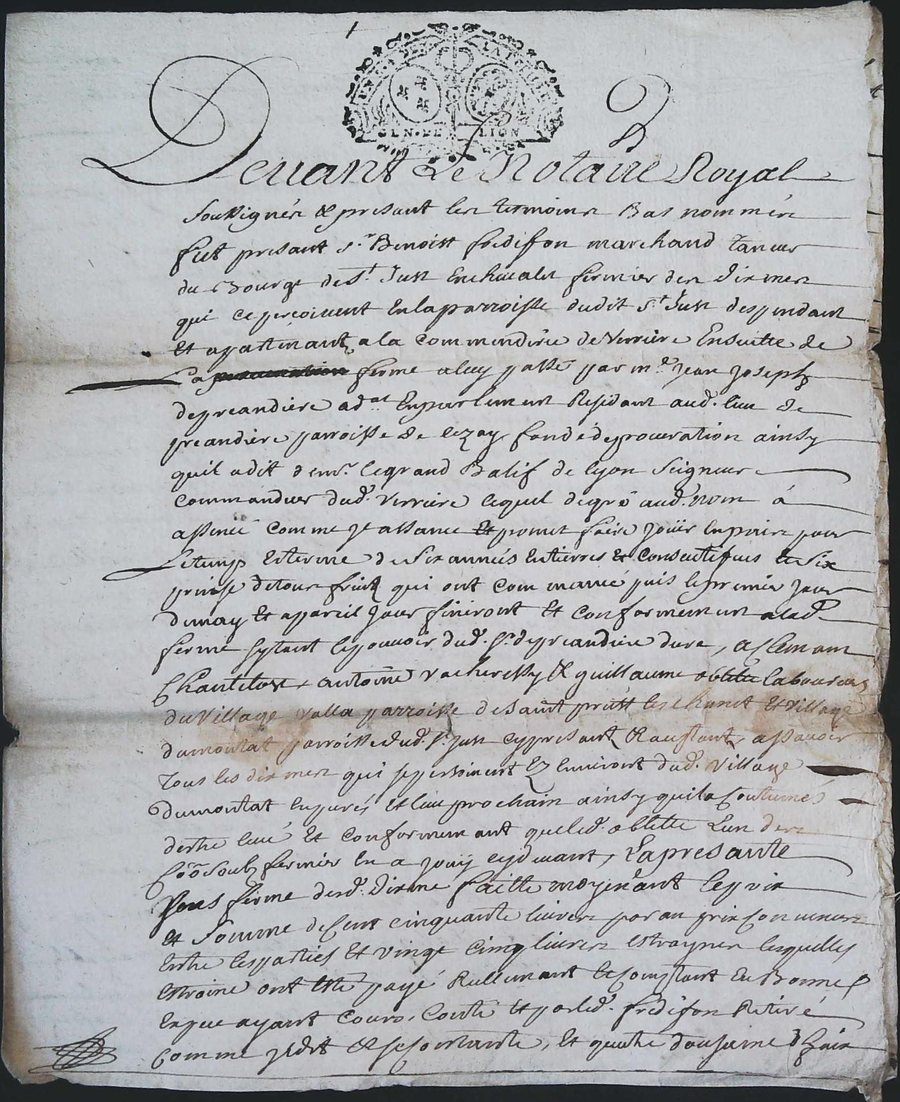 GEN. DE LION
Devant Le Notaire Royal
Soussignés & presant les temoins Bas nommés
fut presant sr Benoist fredifon marchand taneur
du Bourg de st Just Enchevalet fermier des Dixmes
qui ce perçoivent En la parroisse dudit st Just despendant
Et apartenant a la commendérie de Verriere Ensuitte de
La ferme a luy passé par me Jean Joseph
depreandiere adat En parlement Residant aud. lieu de
preandiere parroisse de Lezay fondé de procuration ainsy
quil a dit de mr. le grand Balif de Lyon Seigneur
Commandeur dud. Verriere lequel de gré aud. nom à
assencé comme Jl assance Et promet faire Joüir En paix pour
Le temps Et terme de Six années Entieres & Consecutifves Et Six
prinse de tous fruitz qui ont commancé puis le premier Jour
de may Et a pareil Jour finiront Et conformement a lad.
ferme sy tant le pouvoir dud. sr. depreandiere dure, a
Chantelot, antoine & guillaume oblette Laboureurs
du Village parroisse de Saint priest Et Village
du montat parroisse dud. st. Just cy presant & acceptant, a scavoir
Tous les dixmes qui se persoivent Ez Environt dud. Village
du montat Et lieu prochain ainsy quil a Coutume
destre levé Et conformement que led. oblette L'un des
Soub fermier En a Jouy cydevant, La presante
Sous ferme desd. Dixme faitte moyenant le prix
Et Somme de Cent cinquante livres par an prix Convenu
Entre les parties Et vingt cinq livres Estraynes lesquelles
Estreine ont Esté payé Reellement Et Comptant En Bonne
Espece ayant Cours, Conté Et par led. fredifon Retiré
comme Jl dit & se contante, Et quatre douzaine d